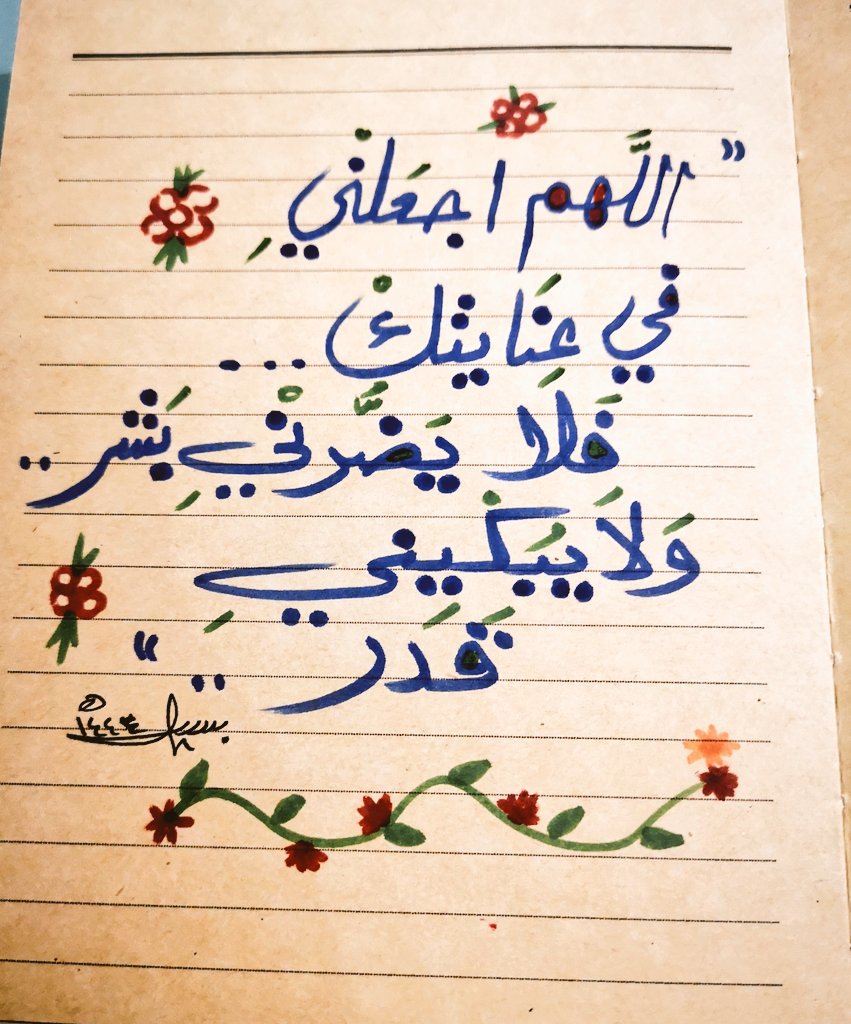 "اللَّهم اجعَلْني
في عِنَايتكْ ...
فَلَا يَضرَّنْي بَشر ..
وَلاَ يُبَكْيني
قَدَر .. "
١٤٤٣